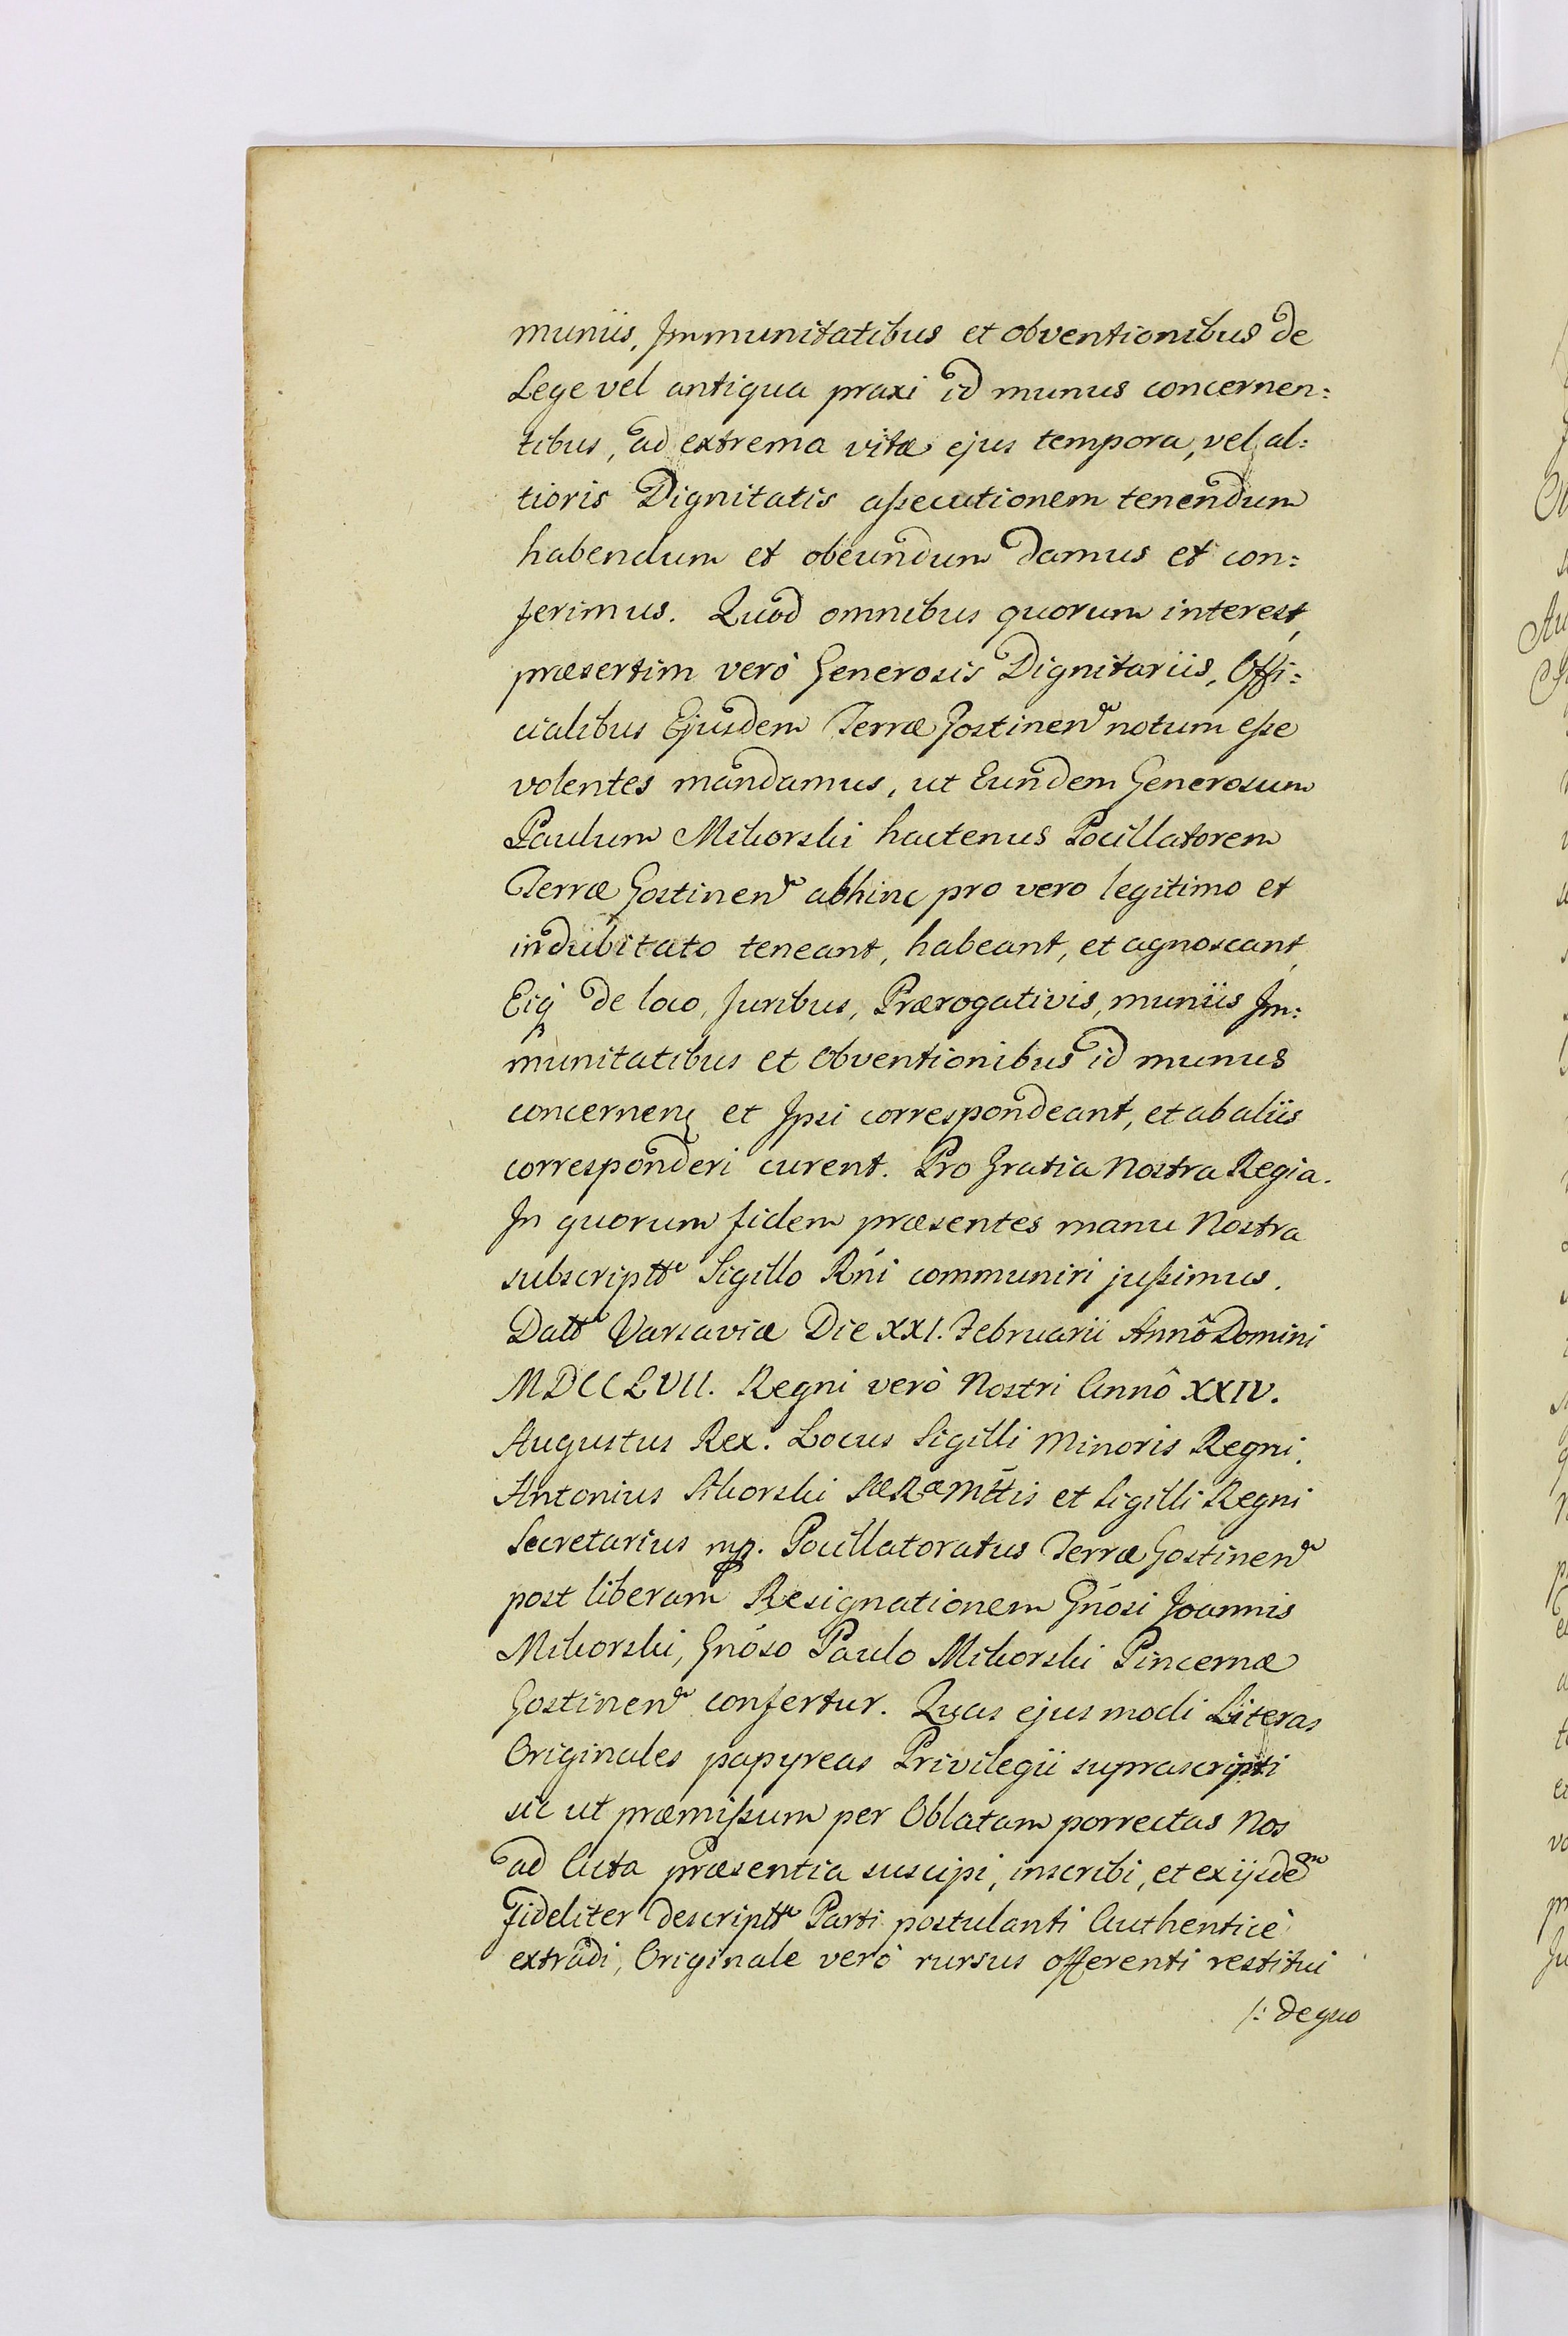 muniis, Immunitatibus et obventionibus de
Lege vel antiqua praxi id munus concernen:
tibus, ad extrema vitæ ejus tempora, vel al:
tioris Dignitatis aßecutionem tenendum
habendum et obeundum damus et con:
ferimus. Quod omnibus quorum interest,
præsertim verò Generosis Dignitariis, Offi:
cialibus Ejusdem Terræ Gostinen notum eße
volentes mandamus, ut Eundem Generosum
Paulum Mikorski hactenus Pocillatorem
Terræ Gostinen abhinc pro vero legitimo et
indubitato teneant, habeant, et agnoscant,
Eiq de loco, Juribus, Prærogativis, muniis Im:
munitatibus et Obventionibus id munus
concernen et Ipsi correspondeant, et ab aliis
corresponderi curent. Pro Gratia Nostra Regia.
In quorum fidem præsentes manu Nostra
subscriptt Sigillo Rńi communiri jußimus.
Datt Varsaviæ Die XXI. Februarii Annô Domini
MDCCLVII. Regni verò Nostri Annô XXIV.
Augustus Rex. Locus Sigilli Minoris Regni.
Antonius Sikorski SæRæMttis et Sigilli Regni
Secretarius mp. Pocillatoratus Terræ Gostinen
post liberam Resignationem Gńosi Joannis
Mikorski, Gńoso Paulo Mikorski Pincernæ
Gostinen confertur. Quas ejusmodi Literas
Originales papyreas Privilegii suprascripti
sic ut præmißum per Oblatam porrectas Nos
ad Acta præsentia suscipi, inscribi, et ex ijsdem
Fideliter descriptt Parti postulanti Authenticè
extradi, Originale verò rursus offerenti restitui
/: de quo